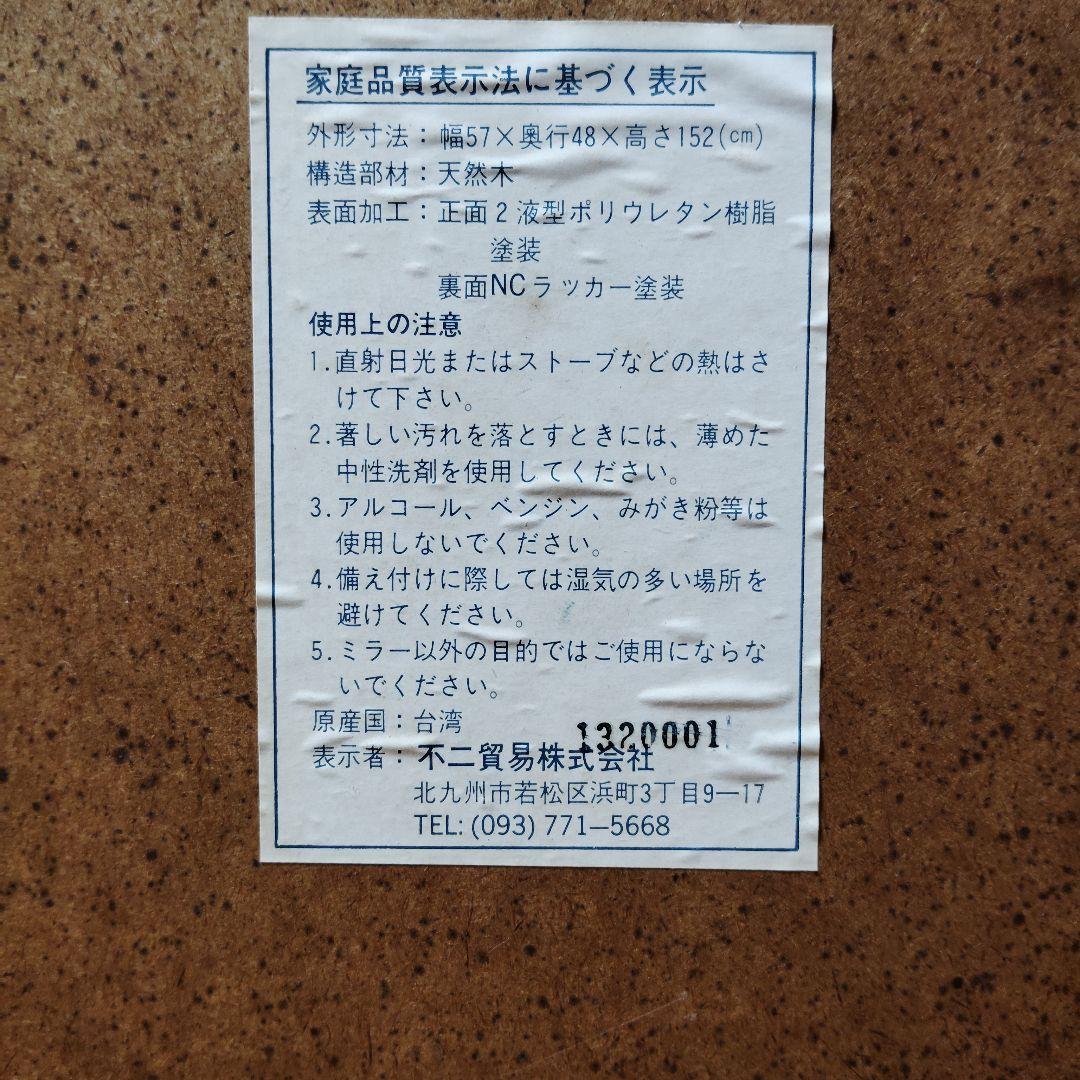 家庭品質表示法に基づく表示
外形寸法：幅57×奥行48×高さ152(cm)
構造部材：天然木
表面加工：正面2液型ポリウレタン樹脂
塗装
裏面NCラッカー塗装
使用上の注意
1.直射日光またはストーブなどの熱はさ
けて下さい。
2.著しい汚れを落とすときには、薄めた
中性洗剤を使用してください。
3.アルコール、ベンジン、みがき粉等は
使用しないでください。
4.備え付けに際しては湿気の多い場所を
避けてください。
5.ミラー以外の目的ではご使用にならな
いでください。
原産国：台湾
1320001
表示者：不二貿易株式会社
北九州市若松区浜町3丁目9—17
TEL:(093)771—5668